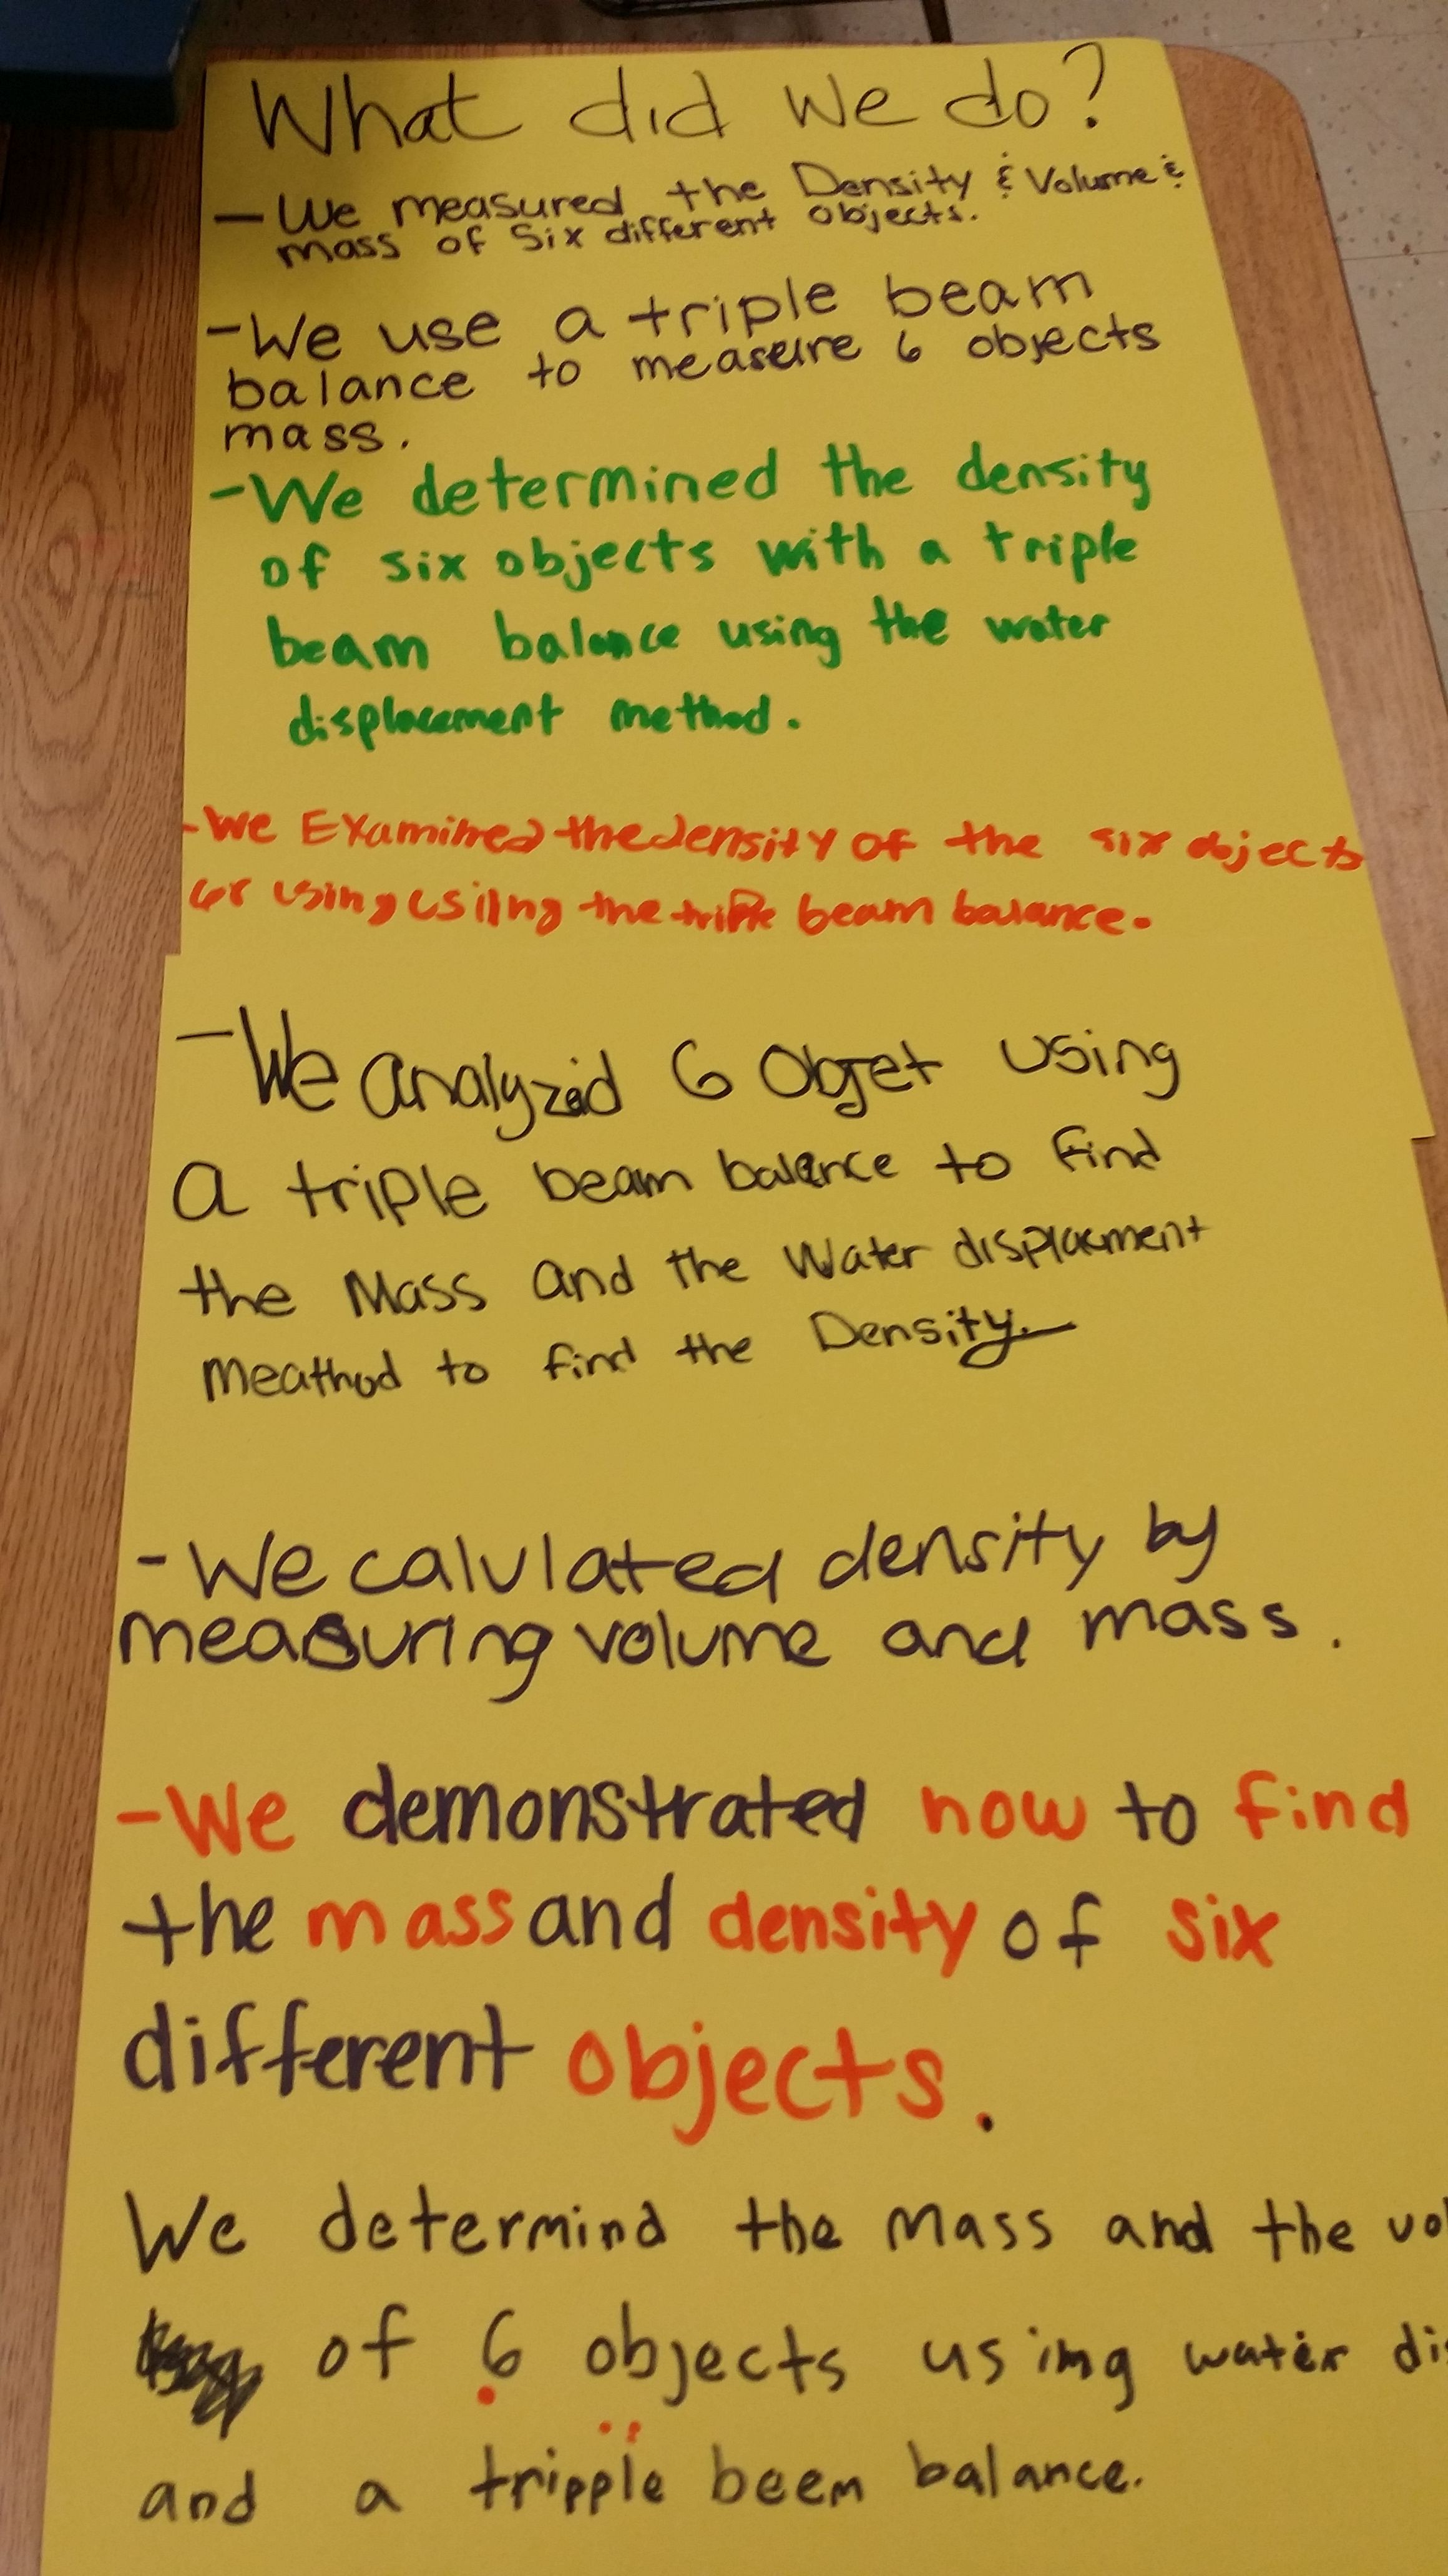 What did we do?
- We measured the Density & Volume &
mass of Six different objects.
- We use a triple beam
balance to measure 6 objects
mass.
- We determined the density
of six objects with a triple
beam balance using the water
displacement method.
- We Examined the density of the six objects
using usiing the triple beam balance.
- We analyzed 6 Objet using
a triple beam balance to find
the Mass and the Water displacment
Meathod to find the Density.
- We calvlated density by
measuring volume and mass.
- We demonstrated how to find
the mass and density of six
different objects.
We determind the mass and the vol
of 6 objects using water dis
and a tripple beem balance.